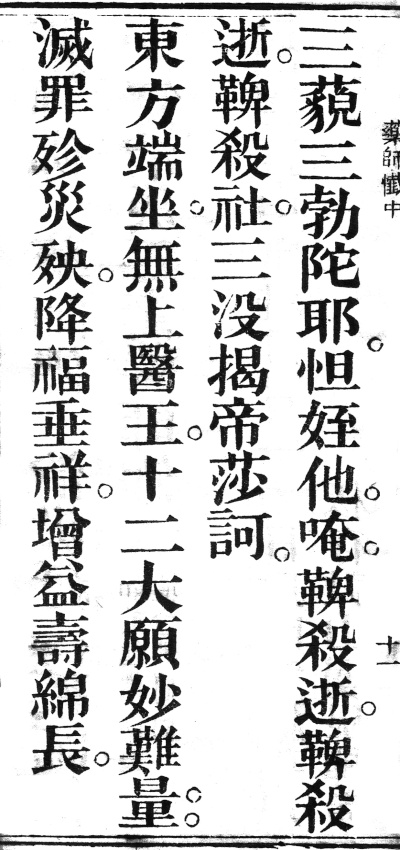 藥師懺中
十一
三藐三勃陀耶。怛姪他。唵。鞞殺逝。鞞殺
逝。鞞殺社。三没揭帝莎訶。
東方端坐。無上醫王。十二大願妙難量。。
滅罪殄災殃。降福垂祥。增益壽綿長。